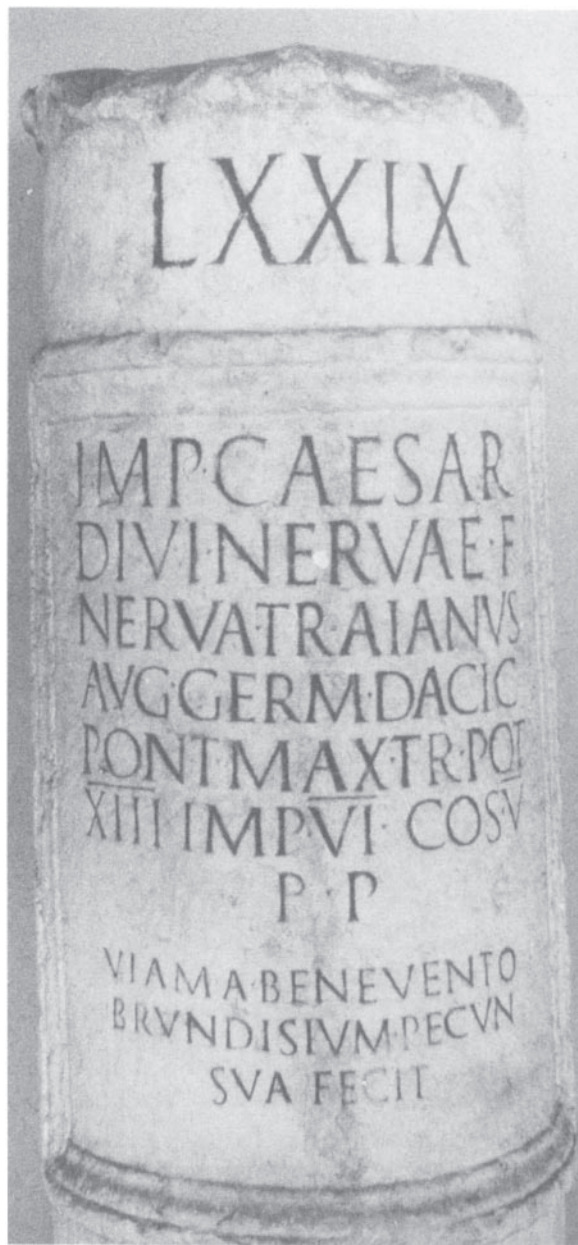 LXXIX
IMP·CAESAR
DIVI·NERVAE·F
NERVA·TRAIANVS
AVG·GERM·DACIC
PONT·MAX·TR·POT
XIII IMP·VI·COS·V
P·P
VIAM A·BENEVENTO
BRVNDISIVM·PECVN
SVA FECIT